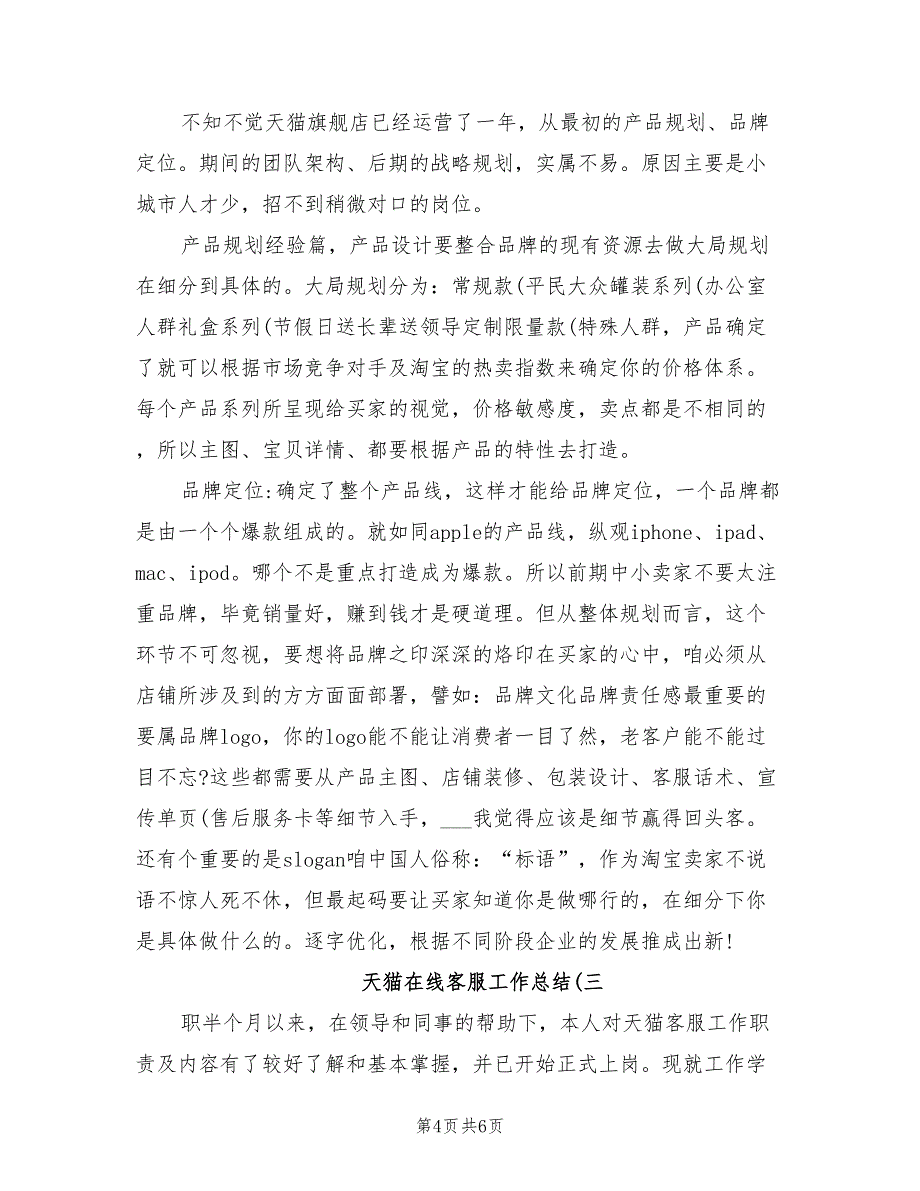 不知不觉天猫旗舰店已经运营了一年，从最初的产品规划、品牌
定位。期间的团队架构、后期的战略规划，实属不易。原因主要是小
城市人才少，招不到稍微对口的岗位。
产品规划经验篇，产品设计要整合品牌的现有资源去做大局规划
在细分到具体的。大局规划分为：常规款(平民大众罐装系列(办公室
人群礼盒系列(节假日送长辈送领导定制限量款(特殊人群，产品确定
了就可以根据市场竞争对手及淘宝的热卖指数来确定你的价格体系。
每个产品系列所呈现给买家的视觉，价格敏感度，卖点都是不相同的
，所以主图、宝贝详情、都要根据产品的特性去打造。
品牌定位:确定了整个产品线，这样才能给品牌定位，一个品牌都
是由一个个爆款组成的。就如同apple的产品线，纵观iphone、ipad、
mac、ipod。哪个不是重点打造成为爆款。所以前期中小卖家不要太注
重品牌，毕竟销量好，赚到钱才是硬道理。但从整体规划而言，这个
环节不可忽视，要想将品牌之印深深的烙印在买家的心中，咱必须从
店铺所涉及到的方方面面部署，譬如：品牌文化品牌责任感最重要的
要属品牌logo，你的logo能不能让消费者一目了然，老客户能不能过
目不忘?这些都需要从产品主图、店铺装修、包装设计、客服话术、宣
传单页(售后服务卡等细节入手，___我觉得应该是细节赢得回头客。
还有个重要的是slogan咱中国人俗称：“标语”，作为淘宝卖家不说
语不惊人死不休，但最起码要让买家知道你是做哪行的，在细分下你
是具体做什么的。逐字优化，根据不同阶段企业的发展推成出新!
天猫在线客服工作总结(三
职半个月以来，在领导和同事的帮助下，本人对天猫客服工作职
责及内容有了较好了解和基本掌握，并已开始正式上岗。现就工作学
第4页 共6页